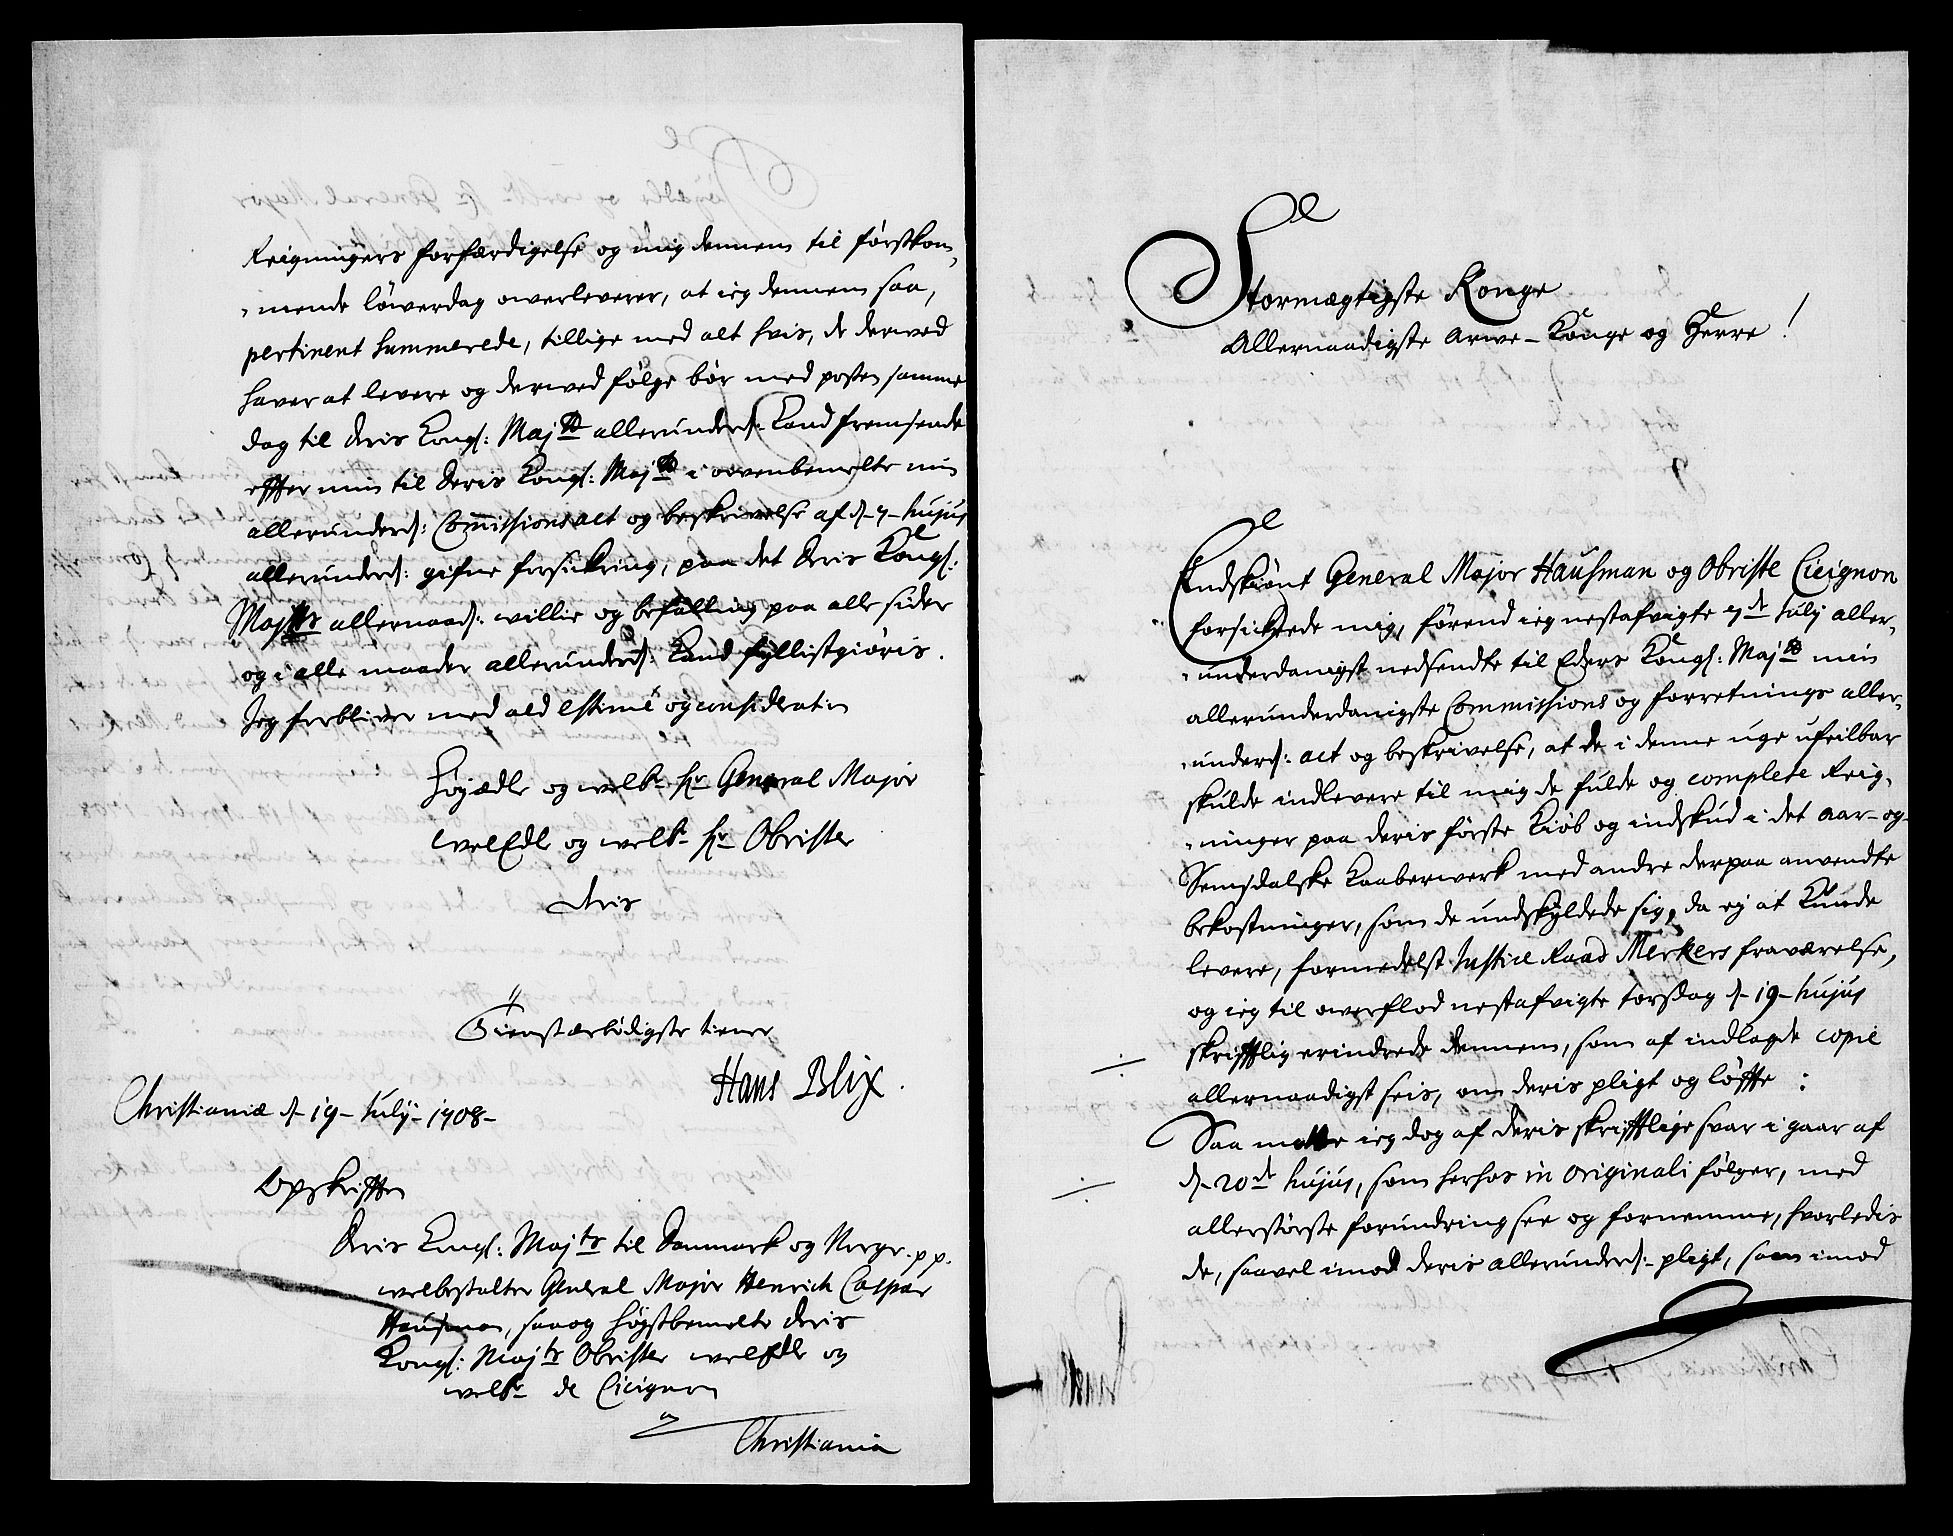 Reigningers forfærdigelse og mig dennem til førstkom,
,mende löwerdag owerleverer, at ieg dennem saa,
pertinent summerede, tillige med alt hvis, de derved
haver at levere og derwed fölge bör med posten samme
dag til deris Kongl: Maj:ts allerunderd: Kand fremsende
effter min til Deris Kongl: Maj:ts i ovenbemelte min
allerunderd: Commissions act og beskrivelse af d-7-hujus
allerunderd: gifne forsickring, paa det deris Kongl:
Maj:ts allernaad: willie og befalling paa alle sider
og i alle maader allerunderd: Kand fyllistgiøris.
Jeg forblifver med ald estime og consideration
Høyædle og welb:r Hr General Major
WelEdle og welb:r Hr Obrister
Deris
Tienstærbödigste tiener
Hans Blix.
Christianiæ d-19-July-1708-
Opskrifften
Deris Kongl: Maj:ts til Danmark og Norge. p p.
welbestalter General Major Henrich Caspar
Hausman, saa og høgstbemelte deris
Kongl: Maj:ts Obrister welEdle og
welb:r de Cicignon
a
Christiania
Stormægtigste Konge
Allernaadigste Arwe-Konge og Herre!
Endskiönt General Major Hausman og Obriste Cicignon
forsickrede mig, förend ieg nestafvigte 7de July aller,
,underdanigst nedsendte til Eders Kongl: Maj:ts min
allerunderdanigste Commissions og forretnings aller,
,underd: act og beskrivelse, at de i denne uge ufeilbar
skulde indlevere til mig de fulde og complete Reig,
,ninger paa deris förste Kiöb og indskud i det Aar-og-
Semsdalske Kaaberwerk med andre derpaa anvendte
bekostninger, som de undskyldede sig, da ej at Kunde
levere, formedelst Justice Raad Merkers fraværelse,
og ieg til owerflod nestafvigte torsdag d-19-hujus
skrifftlig erindrede dennem, som af indlagde copie
allernaadigst seis, om deris pligt og löffte:
Saa motte ieg dog af deris skrifftlige svar i gaar af
d-20de hujus, som herhos in originali fölger, med
allerstörste forundring see og fornemme, hvorledis
de, saavel imod deris allerunderd:- pligt, som imod